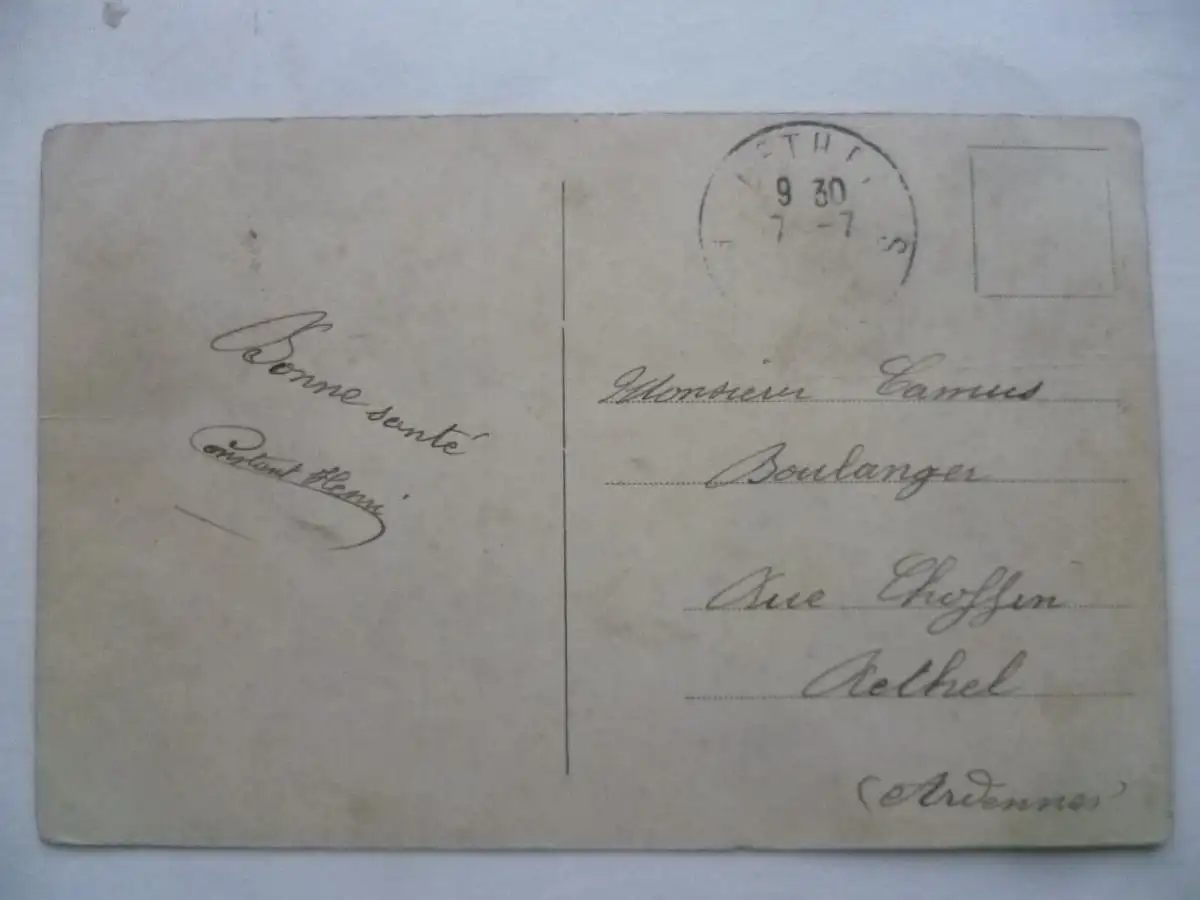 ETHE
9 30
7 -7
S
Bonne santé
Constant Henri
Monsieur Camus
Boulanger
Rue Thoffin
Rethel
(Ardennes)